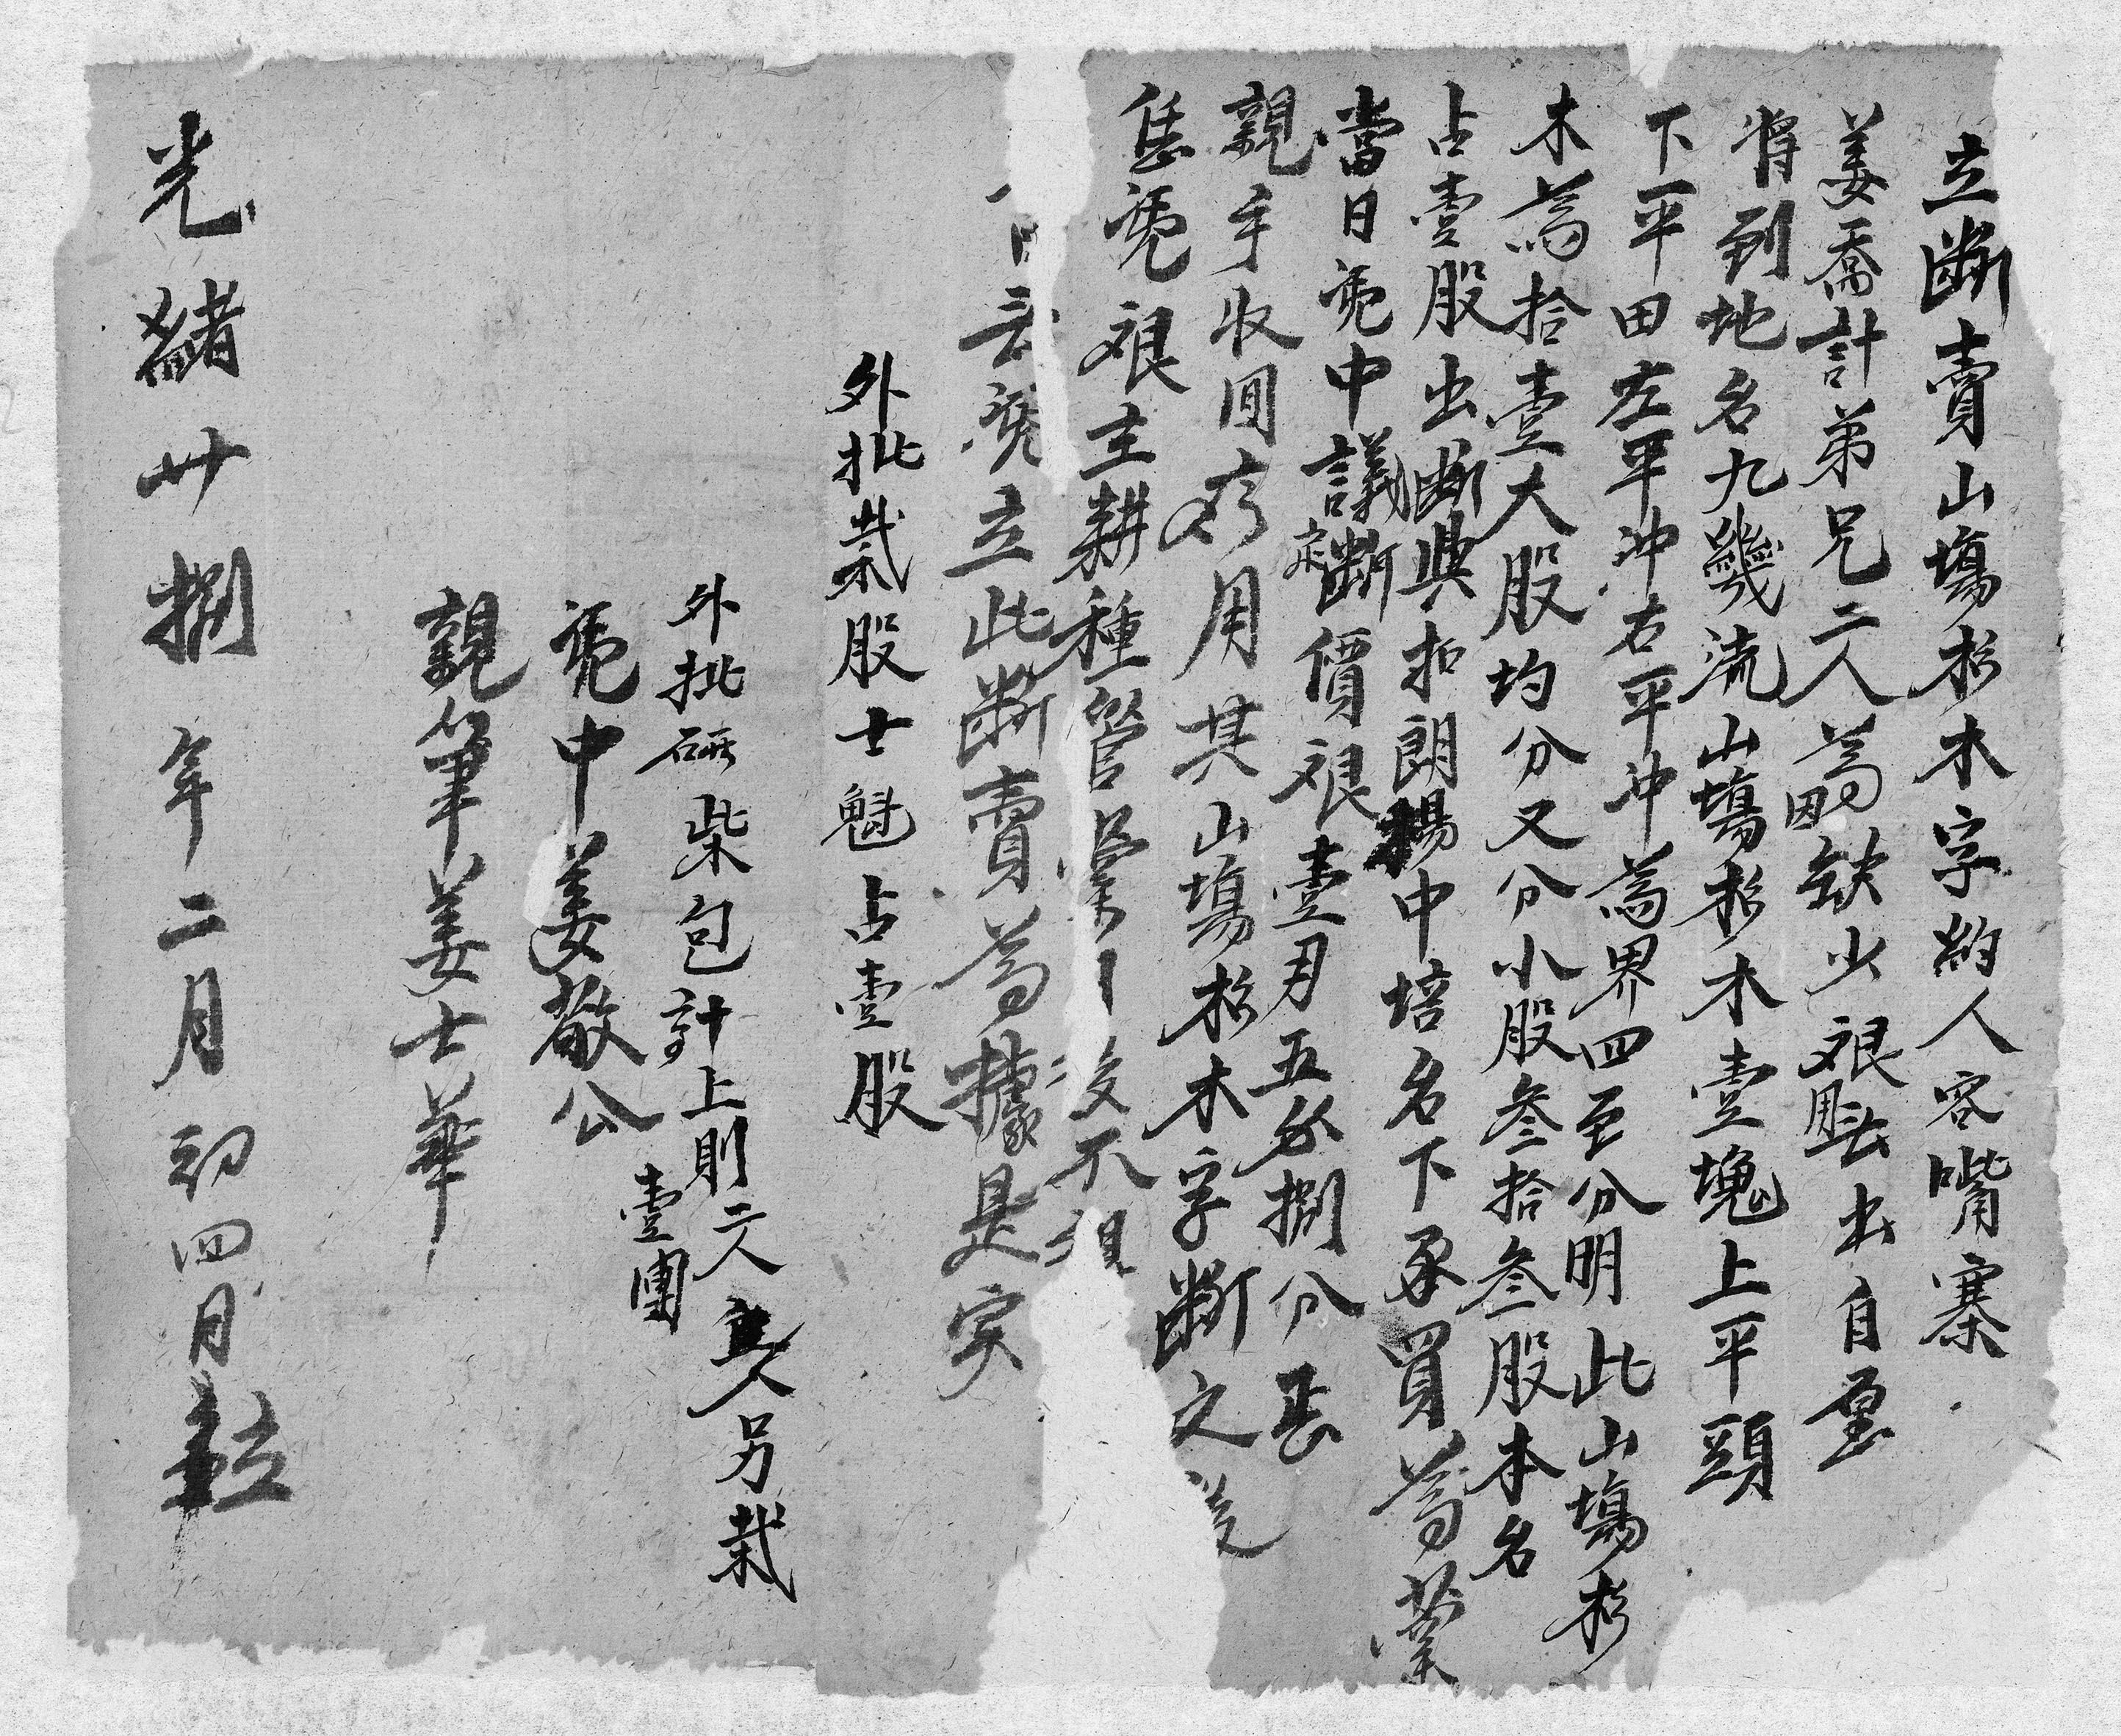 立斷賣山塲杉木字約人容嘴寨
姜喬計弟兄二人為因缺少艮用無出自愿
将到地名九幾流山塲杉木壹塊上平頭
下平田左平沖右平沖為界四至分明此山塲杉
木為拾壹大股均分又分小股叁拾叁股本名
占壹股出斷與扣朗楊中培名下承買為業
當日凭中議定斷價艮壹月五分捌分
親手收回應用其山塲杉木字斷之後
恁凭艮主耕種管業日後不得
言凭立此斷賣為據是实
外批栽股士魁占壹股
外批研柴包計上則二人另栽
壹團
凭中姜啟公
親筆姜士華
光緒廿捌年二月初四日立